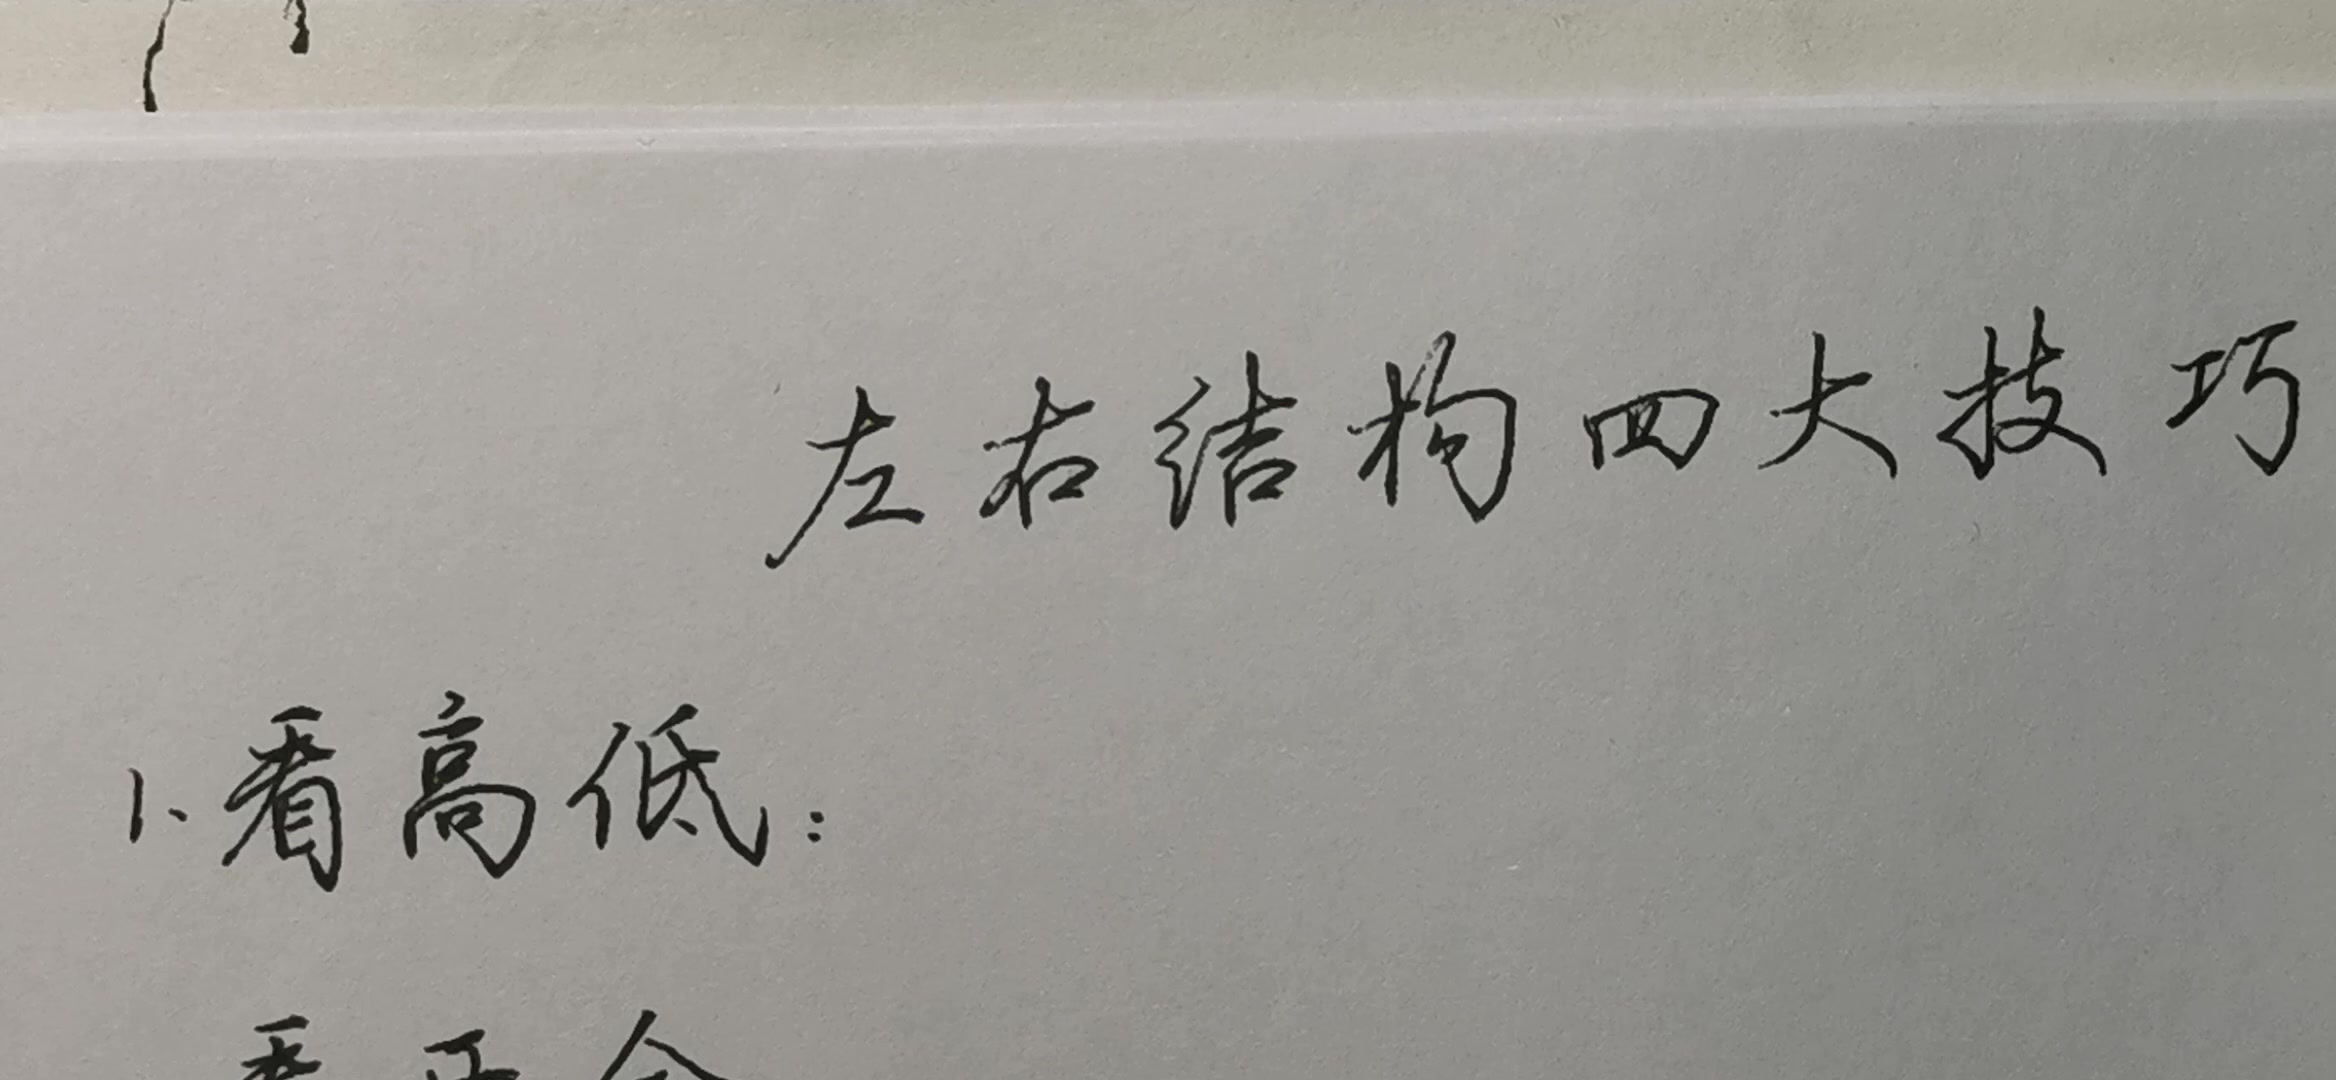 左右结构四大技巧
1、看高低：